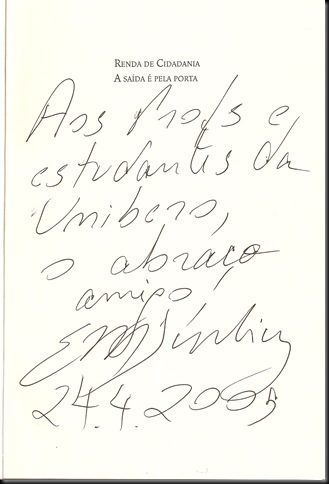 RENDA DE CIDADANIA
A SAÍDA É PELA PORTA
Aos Profs e
estudantes da
Unibero,
o abraço
amigo,
24.4.2005